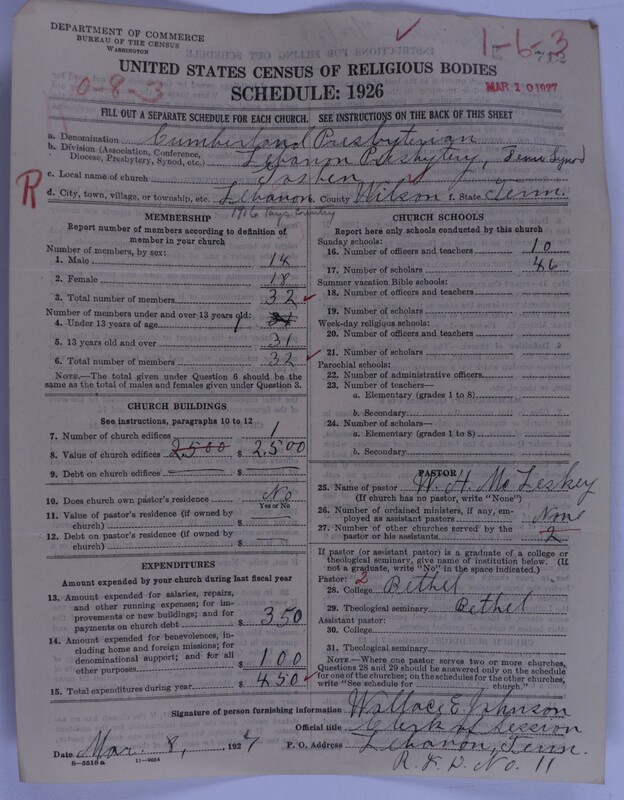 DEPARTMENT OF COMMERCE
BUREAU OF THE CENSUS
WASHINGTON
1-6-3
0-8-3
UNITED STATES CENSUS OF RELIGIOUS BODIES
SCHEDULE: 1926
MAR 10 1927
FILL OUT A SEPARATE SCHEDULE FOR EACH CHURCH. SEE INSTRUCTIONS ON THE BACK OF THIS SHEET
a. Denomination Cumberland Presbyterian
b. Division (Association, Conference, Diocese, Presbytery, Synod, etc.) Lebanon Presbytery, Tenn Synod
c. Local name of church Goshen
R
d. City, town, village, or township, etc. Lebanon e. County Wilson f. State Tenn.
1916 says Country
MEMBERSHIP
Report number of members according to definition of
member in your church
Number of members, by sex:
1. Male 14
2. Female 18
3. Total number of members 32
Number of members under and over 13 years old:
4. Under 13 years of age 1
5. 13 years old and over 31
6. Total number of members 32
NOTE.—The total given under Question 6 should be
same as the total of males and females given under Question 3.
CHURCH BUILDINGS
See instructions, paragraphs 10 to 12
7. Number of church edifices 1
8. Value of church edifices 2,500 $ 2,500
9. Debt on church edifices $
10. Does church own pastor's residence No
Yes or No
11. Value of pastor's residence (if owned by
church) $
12. Debt on pastor's residence (if owned by
church) $
EXPENDITURES
Amount expended by your church during last fiscal year
13. Amount expended for salaries, repairs,
and other running expenses; for im-
provements or new buildings; and for
payments on church debt $ 350
14. Amount expended for benevolences, in-
cluding home and foreign missions; for
denominational support; and for all
other purposes $ 100
15. Total expenditures during year $ 450
CHURCH SCHOOLS
Report here only schools conducted by this church
Sunday schools:
16. Number of officers and teachers 10
17. Number of scholars 46
Summer vacation Bible schools:
18. Number of officers and teachers
19. Number of scholars
Week-day religious schools:
20. Number of officers and teachers
21. Number of scholars
Parochial schools:
22. Number of administrative officers
23. Number of teachers—
a. Elementary (grades 1 to 8)
b. Secondary
24. Number of scholars—
a. Elementary (grades 1 to 8)
b. Secondary
PASTOR
25. Name of pastor W. H. McLeskey
(If church has no pastor, write "None")
26. Number of ordained ministers, if any, em-
ployed as assistant pastors None
27. Number of other churches served by the
pastor or his assistants 2
If pastor (or assistant pastor) is a graduate of a college or
theological seminary, give name of institution below. (If
not a graduate, write "No" in the space indicated.)
Pastor: 2
28. College Bethel
29. Theological seminary Bethel
Assistant pastor:
30. College
31. Theological seminary
NOTE.—Where one pastor serves two or more churches,
Questions 28 and 29 should be answered only on the schedule
for one of the churches; on the schedules for the other churches,
write "See schedule for church."
Signature of person furnishing information Wallace E. Johnson
Official title Clerk of Session
Date Mar. 8, 1927 P. O. Address Lebanon, Tenn.
8-5518a 11-9034
R. F. D. No. 11